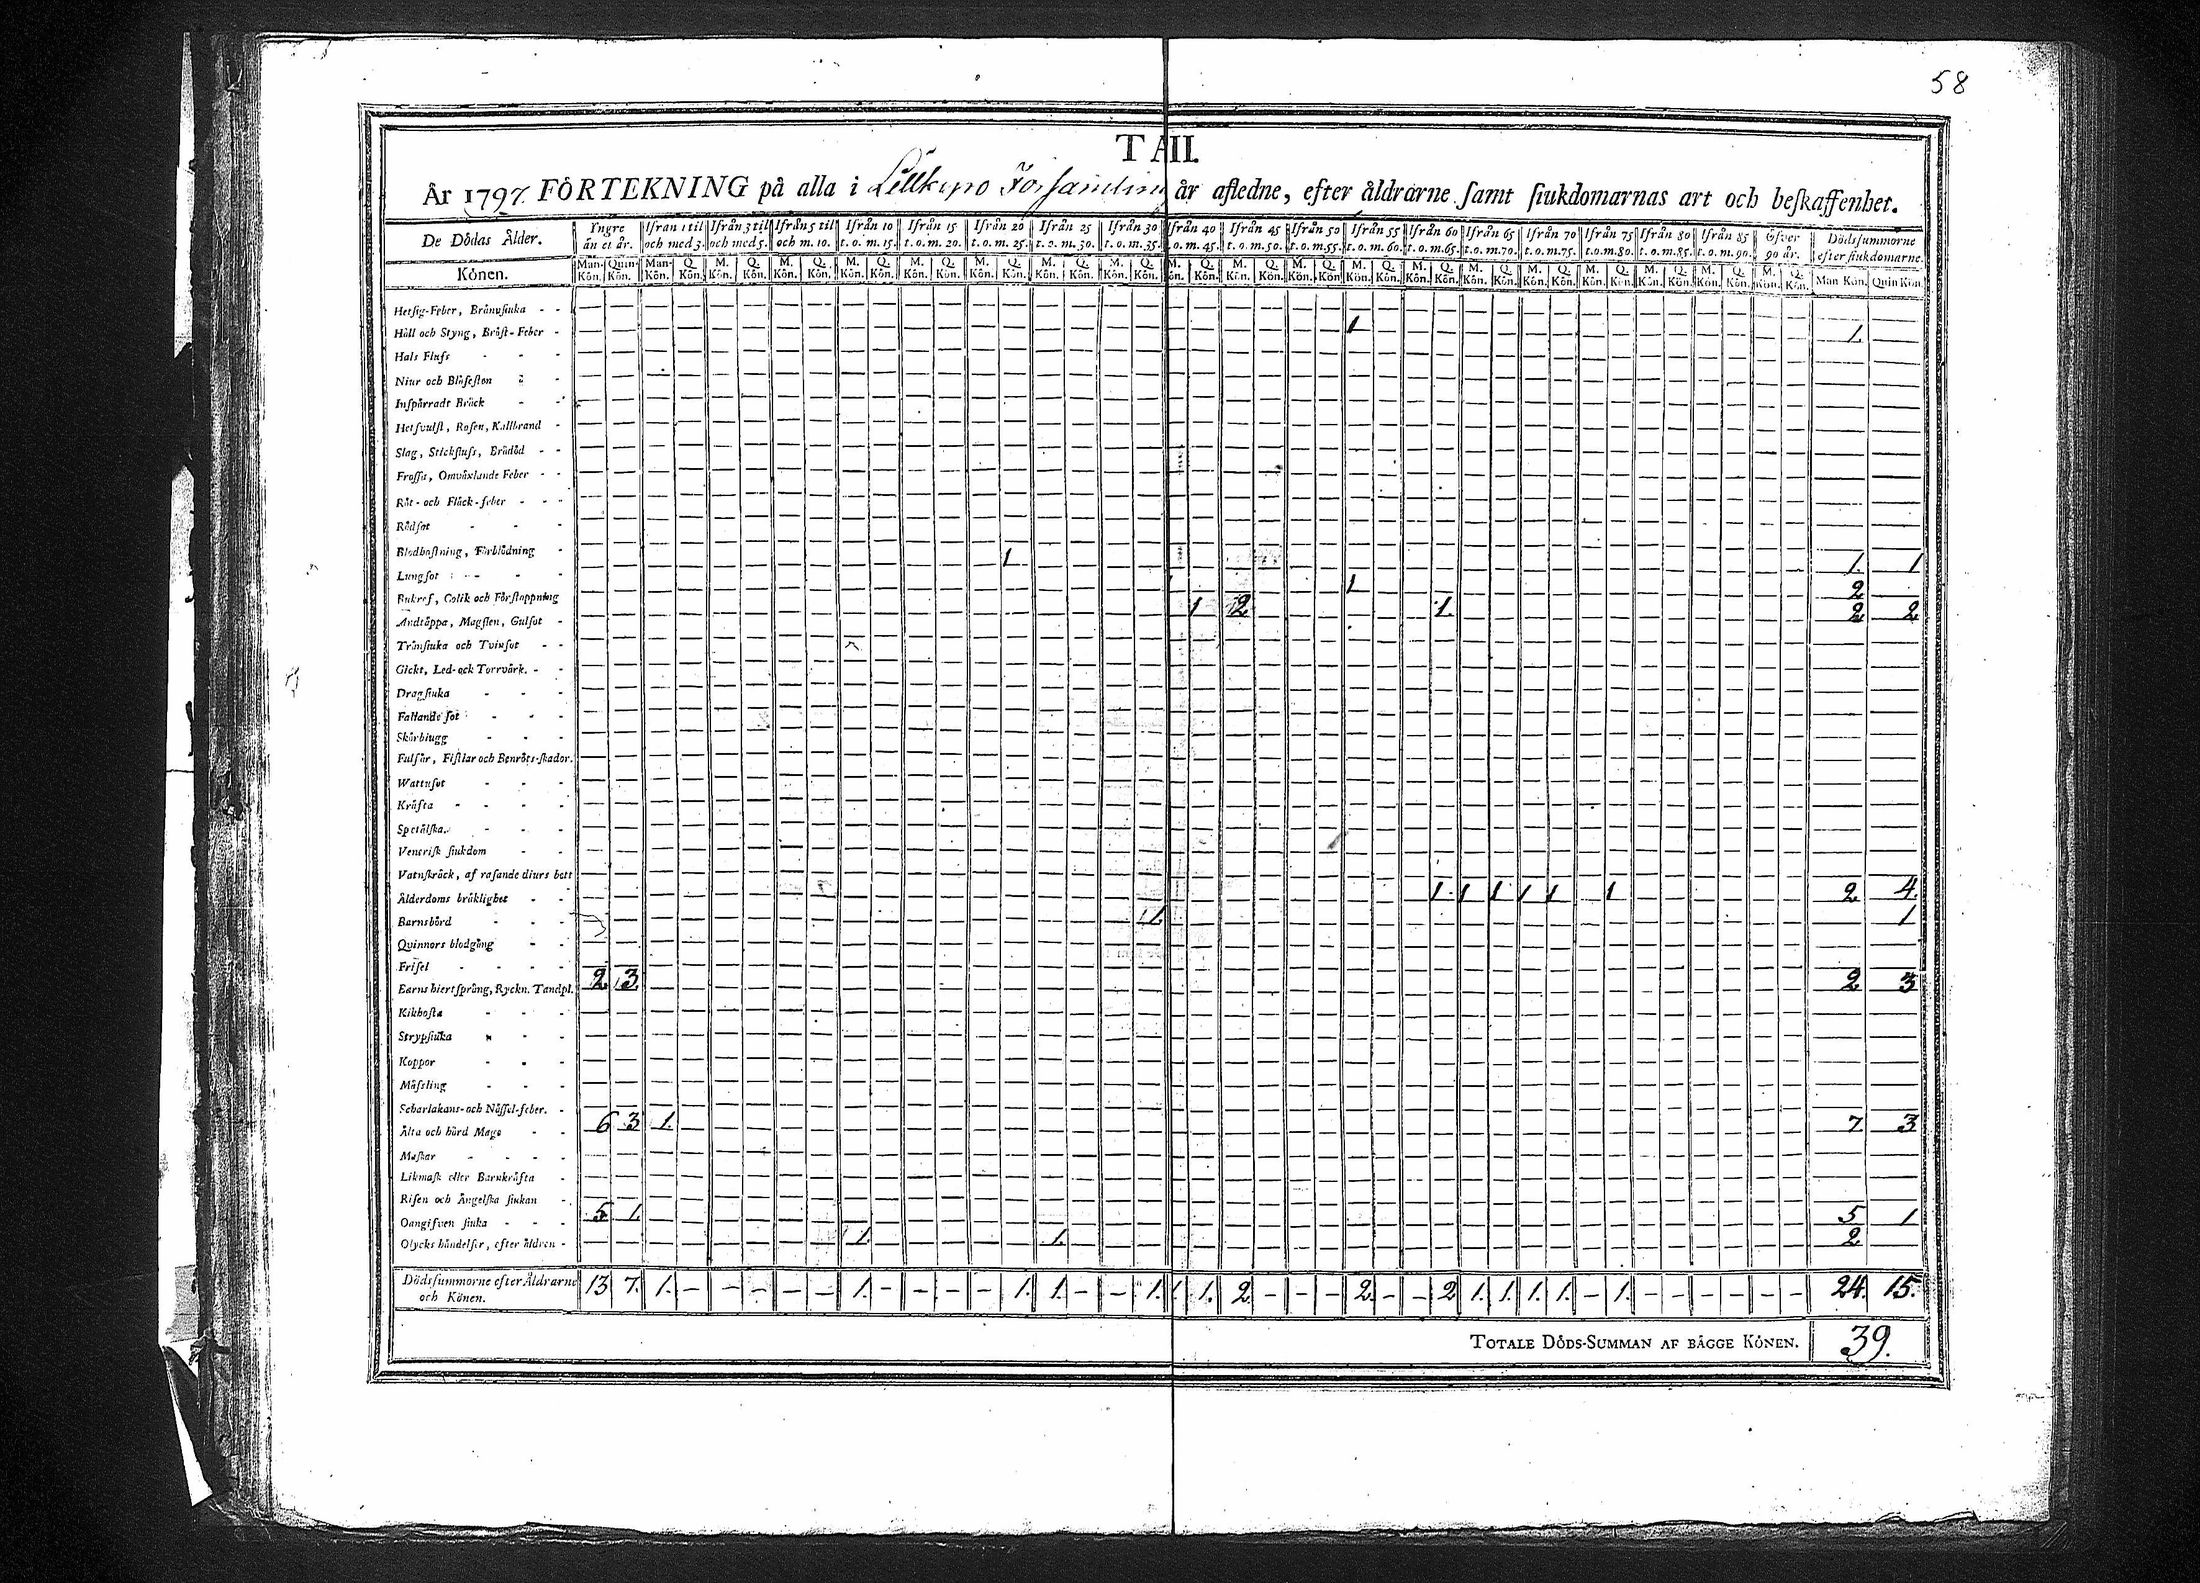 58
TA II.
År 1797. FÖRTEKNING på alla i år afledne, efter åldrarne samt siukdomarnas art och beskaffenhet.
De Dödas Ålder. Yngre än et år. Ifrån 1 til och med 3. Ifrån 3 til och med 5. Ifrån 5 til och m. 10. Ifrån 10 t. o. m. 15. Ifrån 15 t. o. m. 20. Ifrån 20 t. o. m. 25. Ifrån 25 t. o. m. 30. Ifrån 30 t. o. m. 35. från 40 o. m. 45. Ifrån 45 t. o. m. 50. Ifrån 50 t. o. m. 55. Ifrån 55 t. o. m. 60. Ifrån 60 t. o. m. 65. Ifrån 65 t. o. m. 70. Ifrån 70 t. o. m. 75. Ifrån 75 t. o. m. 80. Ifrån 80 t. o. m. 85. Ifrån 85 t. o. m. 90. Öfver 90 år. Dödssummorne efter siukdomarne.
Könen. Man-Kön. Quin-Kön. Man-Kön. Q. Kön. M. Kön. Q. Kön. M. Kön. Q. Kön. M. Kön. Q. Kön. M. Kön. Q. Kön. M. Kön. Q. Kön. M. Kön. Q. Kön. M. Kön. Q. Kön. M. Kön. Q. Kön. M. Kön. Q. Kön. M. Kön. Q. Kön. M. Kön. Q. Kön. M. Kön. Q. Kön. M. Kön. Q. Kön. M. Kön. Q. Kön. M. Kön. Q. Kön. M. Kön. Q. Kön. M. Kön. Q. Kön. M. Kön. Q. Kön. Man Kön. Quin Kön.
Hetsig-Feber, Brännsiuka - -
Håll och Styng, Bröst-Feber - 1 1.
Hals Fluss - - -
Niur och Blåsesten - -
Inspärradt Bråck - -
Hetsvulst, Rosen, Kallbrand -
Slag, Stickfluss, Brådöd - -
Frossa, Omväxlande Feber - -
Röt- och Fläck-feber - - -
Rödsot - - -
Blodhostning, Förblödning -
Lungsot - - - 1 1. 1
Bukref, Colik och Förstoppning 1 2
Andtäppa, Magsten, Gulsot - 1 2 1. 2 2
Trånsiuka och Tvinsot - -
Gickt, Led- ock Torrvärk. - -
Dragsiuka - - -
Fallande sot - - -
Skörbiugg - - -
Fulsår, Fistlar och Benröts-skador.
Wattusot - - -
Kräfta - - - -
Spetälska. - - -
Venerisk siukdom - -
Vatuskräck, af rasande diurs bett
Ålderdoms bräklighet - - 1 1 1 1 1 1 2 4.
Barnsbörd - - - 1. 1
Quinnors blodgång - -
Frisel - - - -
Barns hiertsprång, Ryckn. Tandpl. 2 3 2 3
Kikhosta - - -
Strypsiuka - - -
Koppor - - -
Mässling - - -
Scharlakans- och Nässel-feber. -
Älta och hård Mage - - 6 3 1. 7 3
Maskar - - - -
Likmask eller Barnkräfta -
Risen och Ängelska siukan -
Oangifven siuka - - - 5 1. 5 1
Olycks händelser, efter åldren - 1. 1. 2
Dödssummorne efter Åldrarne och Könen. 13 7. 1. - - - - - 1. - - - - 1. 1. - - 1. 1 1. 2 - - - 2. - - 2 1. 1. 1. 1. - 1. - - - - - - 24. 15.
TOTALE DÖDS-SUMMAN AF BÄGGE KÖNEN. 39.